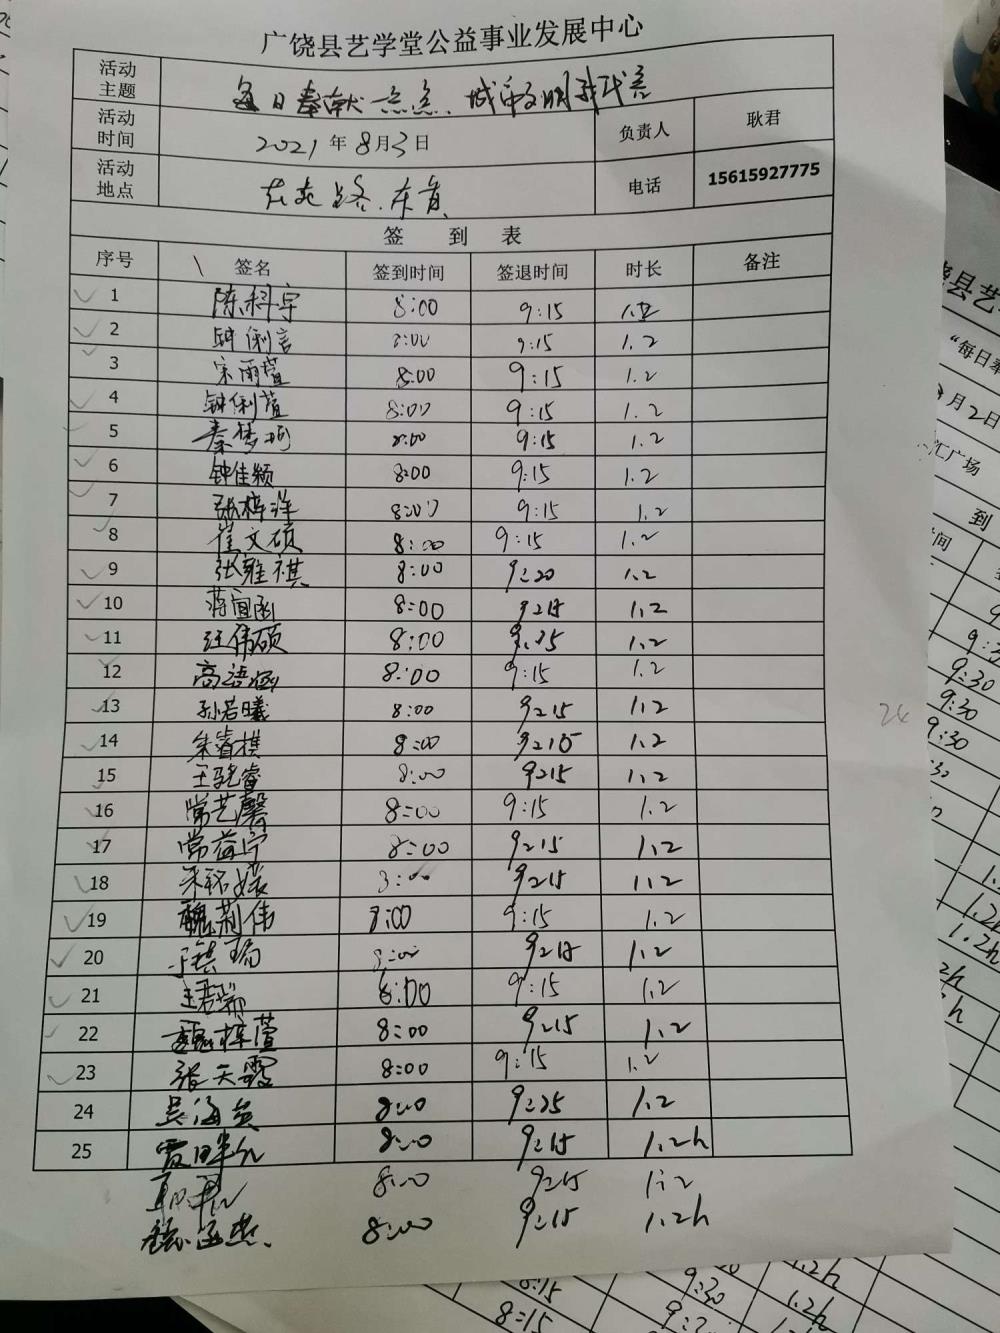 广饶县艺学堂公益事业发展中心
活动主题 每日奉献一点点、城市文明我代言
活动时间 2021年8月3日 负责人 耿君
活动地点 电话 15615927775
签到表
序号 签名 签到时间 签退时间 时长 备注
1 陈科宇 8:00 9:15 1.2
2 钟俐言 8:00 9:15 1.2
3 宋雨萱 8:00 9:15 1.2
4 钟俐萱 8:00 9:15 1.2
5 秦梦珂 8:00 9:15 1.2
6 钟佳颖 8:00 9:15 1.2
7 张梓洋 8:00 9:15 1.2
8 崔文硕 8:00 9:15 1.2
9 张雅祺 8:00 9:20 1.2
10 蒋宜函 8:00 9:15 1.2
11 汪伟硕 8:00 9:25 1.2
12 高语涵 8:00 9:15 1.2
13 孙若曦 8:00 9:15 1.2
14 朱睿棋 8:00 9:15 1.2
15 王 睿 8:00 9:15 1.2
16 常艺馨 8:00 9:15 1.2
17 常益宁 8:00 9:15 1.2
18 8:00 9:15 1.2
19 魏莉伟 8:00 9:15 1.2
20 8:00 9:15 1.2
21 王君瑞 8:00 9:15 1.2
22 魏梓萱 8:00 9:15 1.2
23 张天霞 8:00 9:15 1.2
24 吴海 8:00 9:25 1.2
25 8:00 9:15 1.2h
8:00 9:15 1.2
魏函 8:00 9:15 1.2h
24
县艺
“每日奉
月2日
汇广场
到
9:30
9:30
9:30
1.2h
1.2h
8:15 9:30 1.2h
8:15